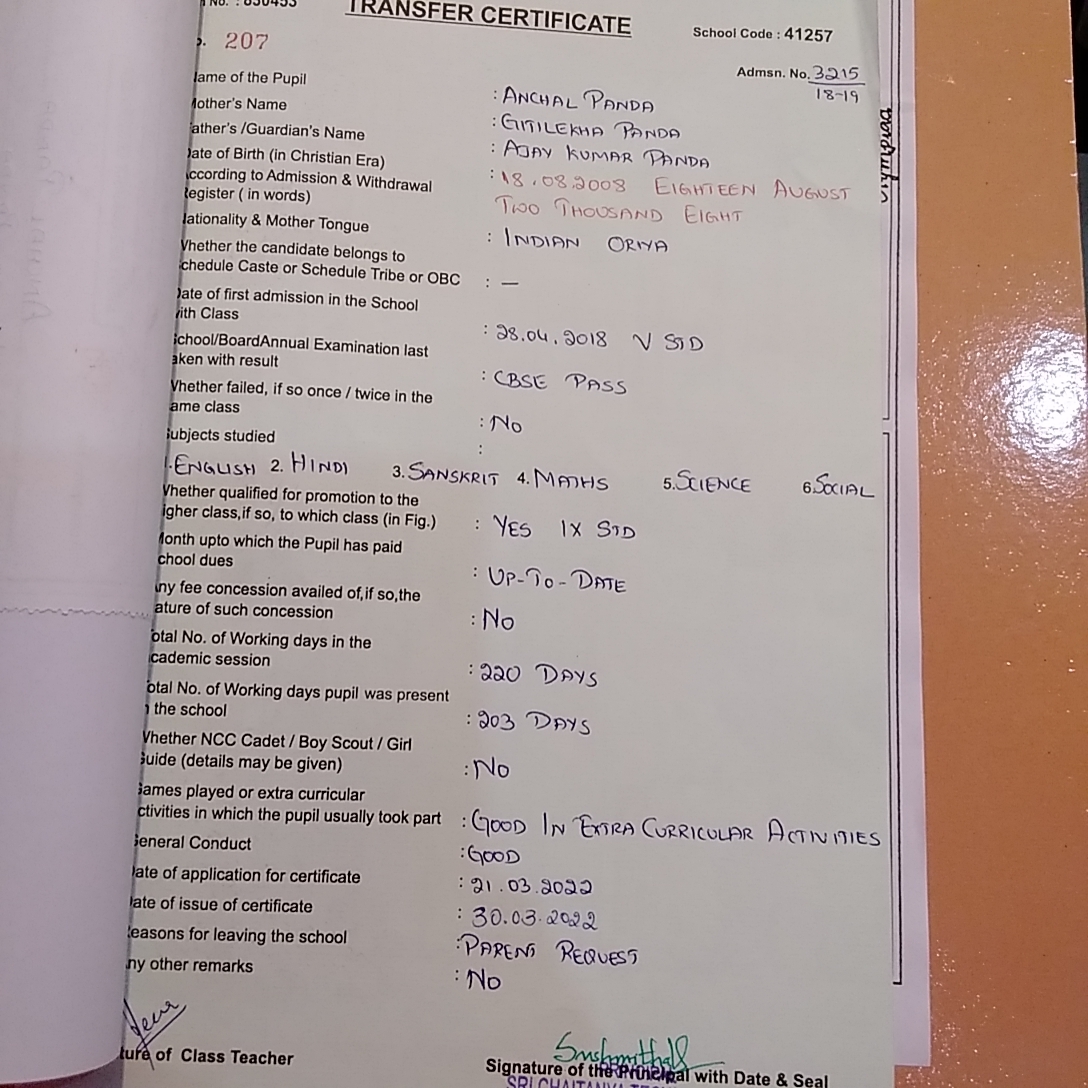 No. : 830453
TRANSFER CERTIFICATE
School Code : 41257
207
Admsn. No. 3215
18-19
ame of the Pupil : ANCHAL PANDA
other's Name : GITILEKHA PANDA
ather's /Guardian's Name : AJAY KUMAR PANDA
ate of Birth (in Christian Era) : 18.08.2008 EIGHTEEN AUGUST
ccording to Admission & Withdrawal
egister ( in words) TWO THOUSAND EIGHT
ationality & Mother Tongue : INDIAN ORIYA
hether the candidate belongs to
chedule Caste or Schedule Tribe or OBC : —
ate of first admission in the School
ith Class : 28.04.2018 V STD
chool/BoardAnnual Examination last
aken with result : CBSE PASS
hether failed, if so once / twice in the
ame class : NO
ubjects studied :
1.ENGLISH 2. HINDI 3. SANSKRIT 4. MATHS 5. SCIENCE 6. SOCIAL
hether qualified for promotion to the
igher class,if so, to which class (in Fig.) : YES IX STD
onth upto which the Pupil has paid
chool dues : UP-TO-DATE
ny fee concession availed of,if so,the
ature of such concession : NO
otal No. of Working days in the
cademic session : 220 DAYS
otal No. of Working days pupil was present
the school : 203 DAYS
hether NCC Cadet / Boy Scout / Girl
uide (details may be given) : NO
ames played or extra curricular
ctivities in which the pupil usually took part : GOOD IN EXTRA CURRICULAR ACTIVITIES
eneral Conduct : GOOD
ate of application for certificate : 21.03.2022
ate of issue of certificate : 30.03.2022
easons for leaving the school : PARENT REQUEST
ny other remarks : NO
ture of Class Teacher
Signature of the Principal with Date & Seal
SRI CHAITANYA